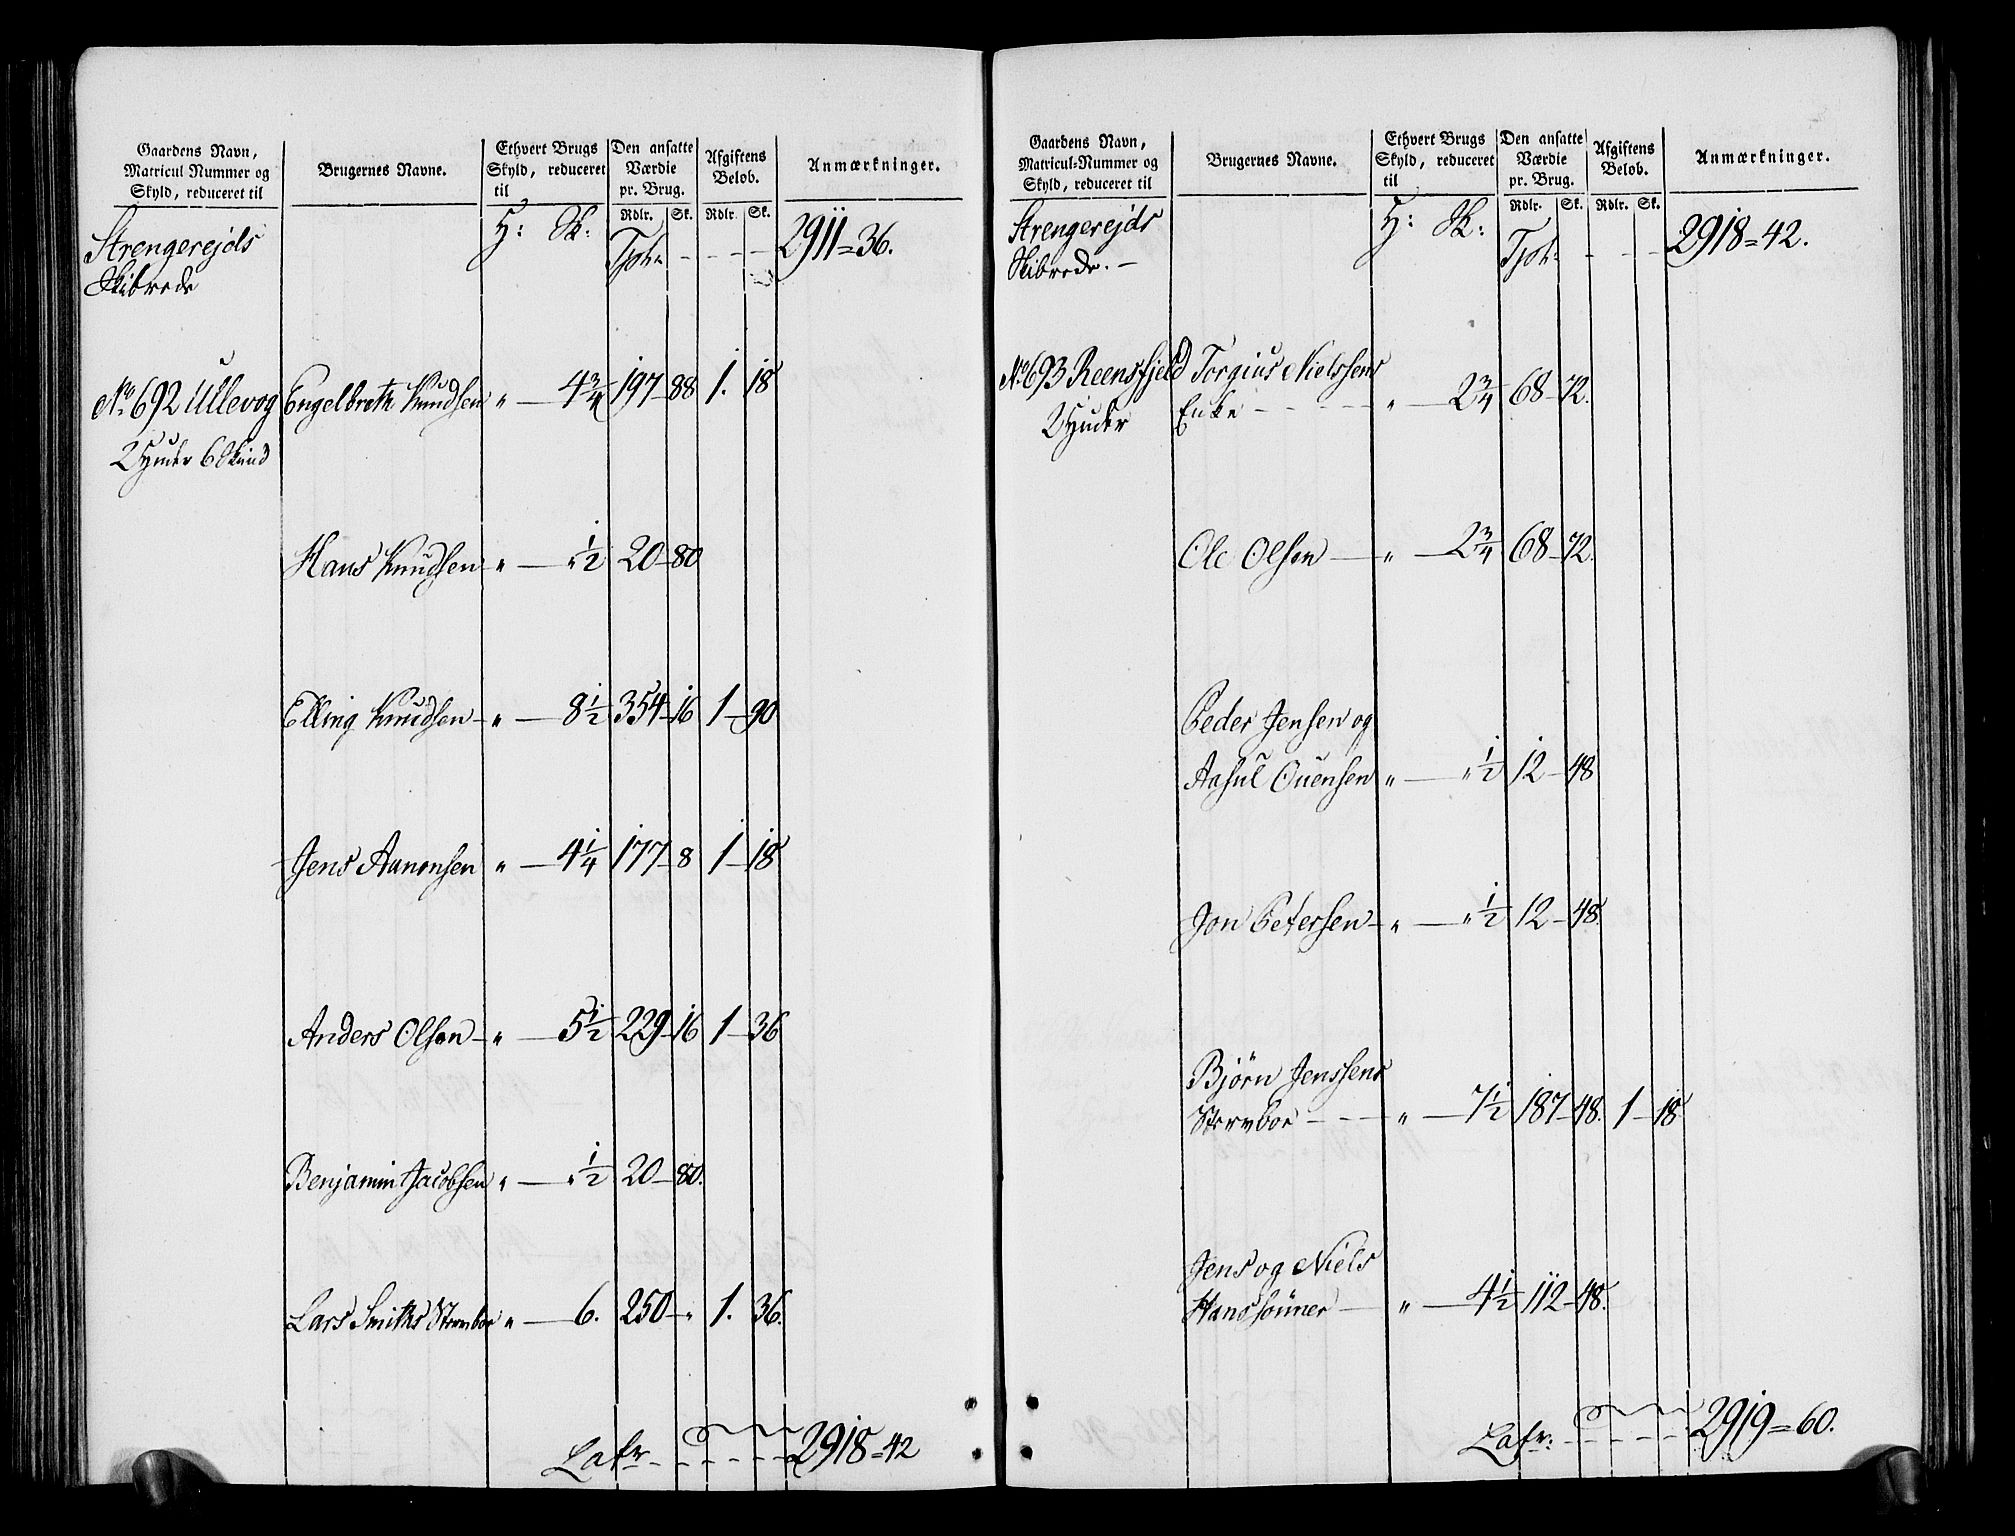 Gaardens Navn,
Matricul Nummer og
Skyld, reduceret til
Brugernes Navne.
Ethvert Brugs
Skyld, reduceret
til
Den ansatte
Værdie
pr. Brug.
Afgiftens
Beløb.
Anmærkninger.
Rdlr. Sk. Rdlr. Sk.
Strengerejds
Skibrede
H: Sk: Tpt. - - - - 2911=36.
No. 692 Ullevog Engelbreth Knudsen „ — 4 3/4 197 - 88 1. 18
2 Huder 6 Skind
Hans Knudsen - „ — „ 1/2 20 - 80
Elling Knudsen - „ — 8 1/2 354 - 16 1 - 90
Jens Aanensen „ — 4 1/4 177 - 8 1 - 18
Anders Olsen - „ — 5 1/2 229 - 16 1 - 36
Benjamin Jacobsen „ — „ 1/2 20 - 80.
Lars Smiths Stervboe „ — 6. 250 - „ 1. 36.
Lafr. - - - - - 2918=42
Gaardens Navn,
Matricul-Nummer og
Skyld, reduceret til
Brugernes Navne.
Ethvert Brugs
Skyld, reduceret
til
Den ansatte
Værdie
pr. Brug.
Afgiftens
Beløb.
Anmærkninger.
Rdlr. Sk. Rdlr. Sk.
Strengerejds
Skibrede. -
H: Sk: Tpt. - - - 2918=42.
No. 693 Reensfjeld Torgius Nielssens
2 Huder Enke - - - - - „ — 2 3/4 68 - 72.
Ole Olsen — „ — 2 3/4 68 - 72.
Peder Jensen og
Aasul Ouensen „ — „ 1/2 12 - 48
Jon Petersen - „ — „ 1/2 12 - 48.
Bjørn Jenssens
Stervboe - - - - „ — 7 1/2 187 - 48. 1 - 18
Jens og Niels
Hanssønner — „ — 4 1/2 112 - 48.
Lafr: - - - - - 2919=60.